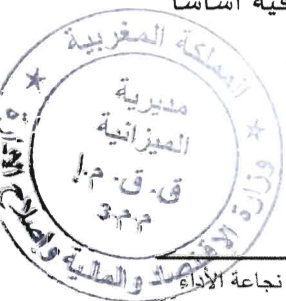 فيه أساسا
المملكة المغربية
مديرية
الميزانية
ق.ق.م.إ
م.م.3
وزارة الاقتصاد والمالية وإصلاح الإدارة
نجاعة الأداء